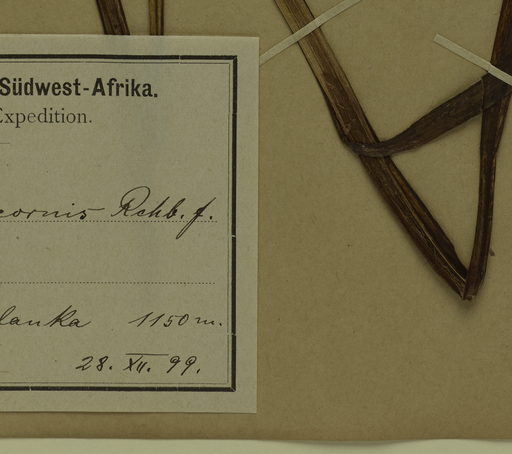 Südwest-Afrika.
Expedition.
cornis Rchb. f.
lanka 1150 m.
28. XII. 99.